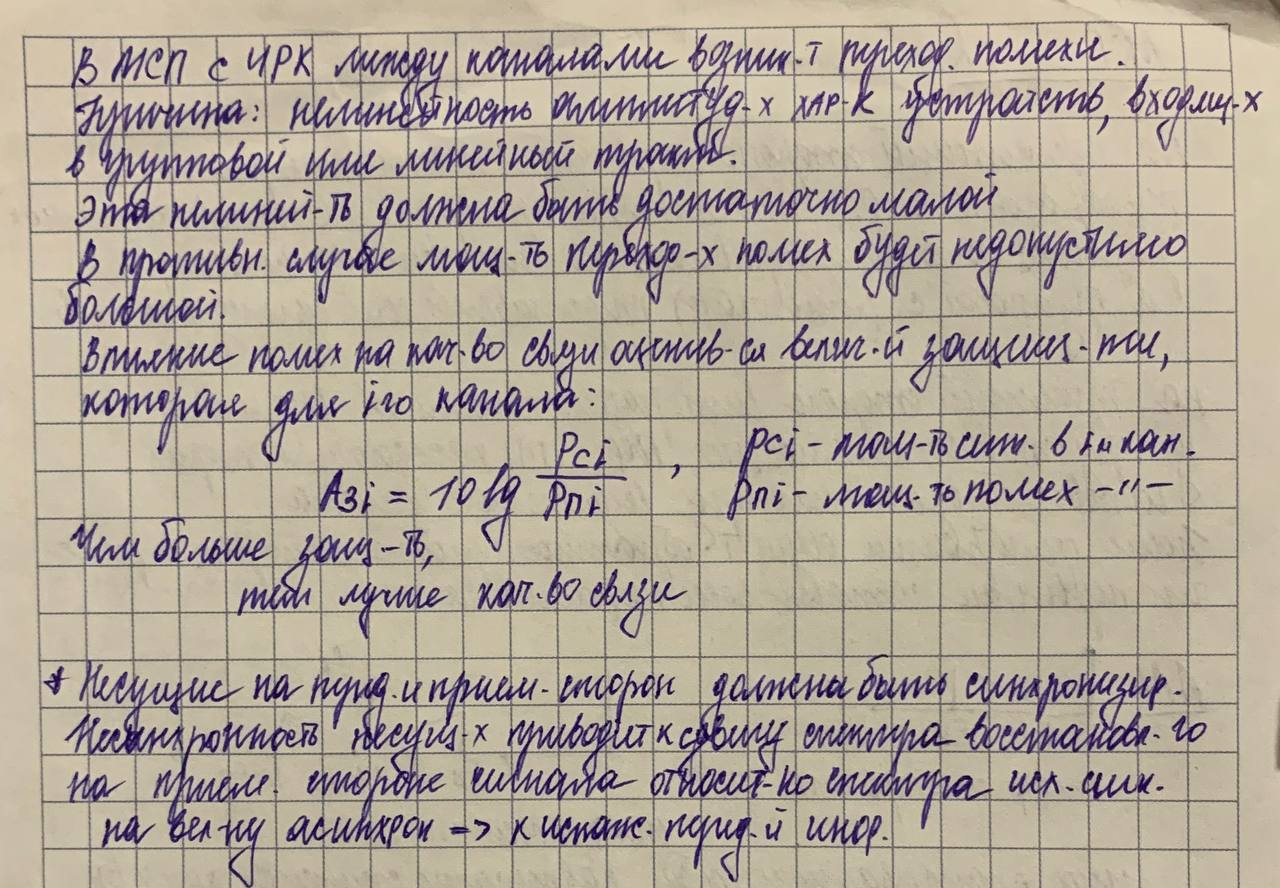 В МСП с ЧРК между каналами возник-т переход. помехи.
Причина: нелинейность амплитуд-х хар-к устройств, входящ-х
в групповой или линейный тракт.
Эта нелиней-ть должна быть достаточно малой
В противн. случае мощ-ть переход-х помех будет недопустимо
большой.
Влияние помех на кач-во связи оценив-ся велич-й защищ-ти,
которая для i-го канала:
Aзi = 10 lg Pci / Pпi , Pci – мощ-ть сиг. в i-м кан.
Pпi – мощ-ть помех –"–
Чем больше защ-ть,
тем лучше кач-во связи
* Несущие на перед. и прием. сторон должна быть синхронизир.
Несинхронность несущ-х приводит к сдвигу спектра восстановл-го
на прием. стороне сигнала относит-но спектра исх. сиг.
на вел-ну асинхрон => к искаж. перед-й инфор.